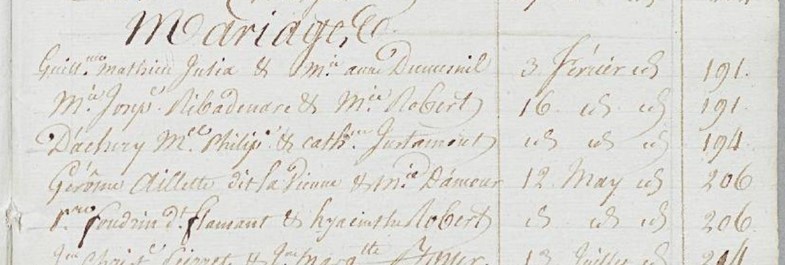 Mariages
Guill.me mathieu Julia & M.ie anne Dumesnil 3 Février id 191.
M.el Josep. Ribadenare & M.ie Robert 16 id id 191.
Dachery M.el Philip. & cath.ne Justamont id id id 194
Gérôme Aillette dit la Vienne & M.ie Damour 12 May id 206
P.re foudrin d.t flamant & hyacinthe Robert id id id 206.
& Juillet